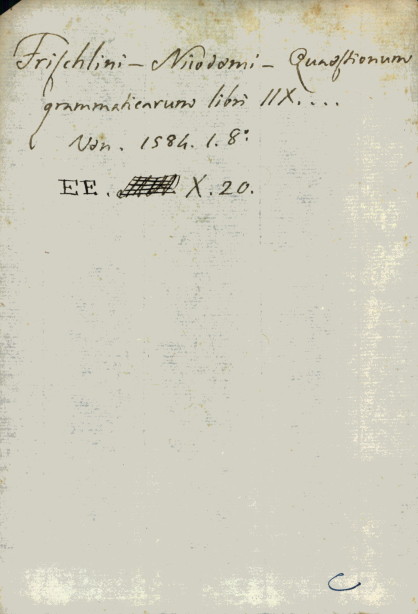 Frischlini - Nicodemi - Quaestionum
grammaticarum libri IIX....
Ven. 1584. 1. 8º
EE. X. 20.
C